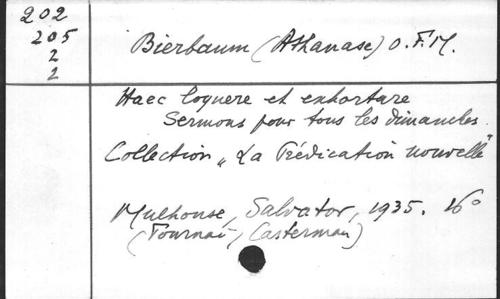 202
205
2
2
Bierbaum (Athanase) O.F.M.
Haec loquere et exhortare
Sermons pour tous les dimanches.
Collection „La Prédication nouvelle"
Mulhouse, Salvator, 1935. 16°
(Tournai, Casterman)